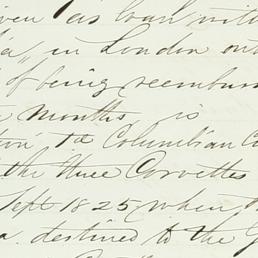 as loan
in London
of being reemburs
months is
1st Columbian C
the three Corvettes
Sept 1825 when
destined to the G